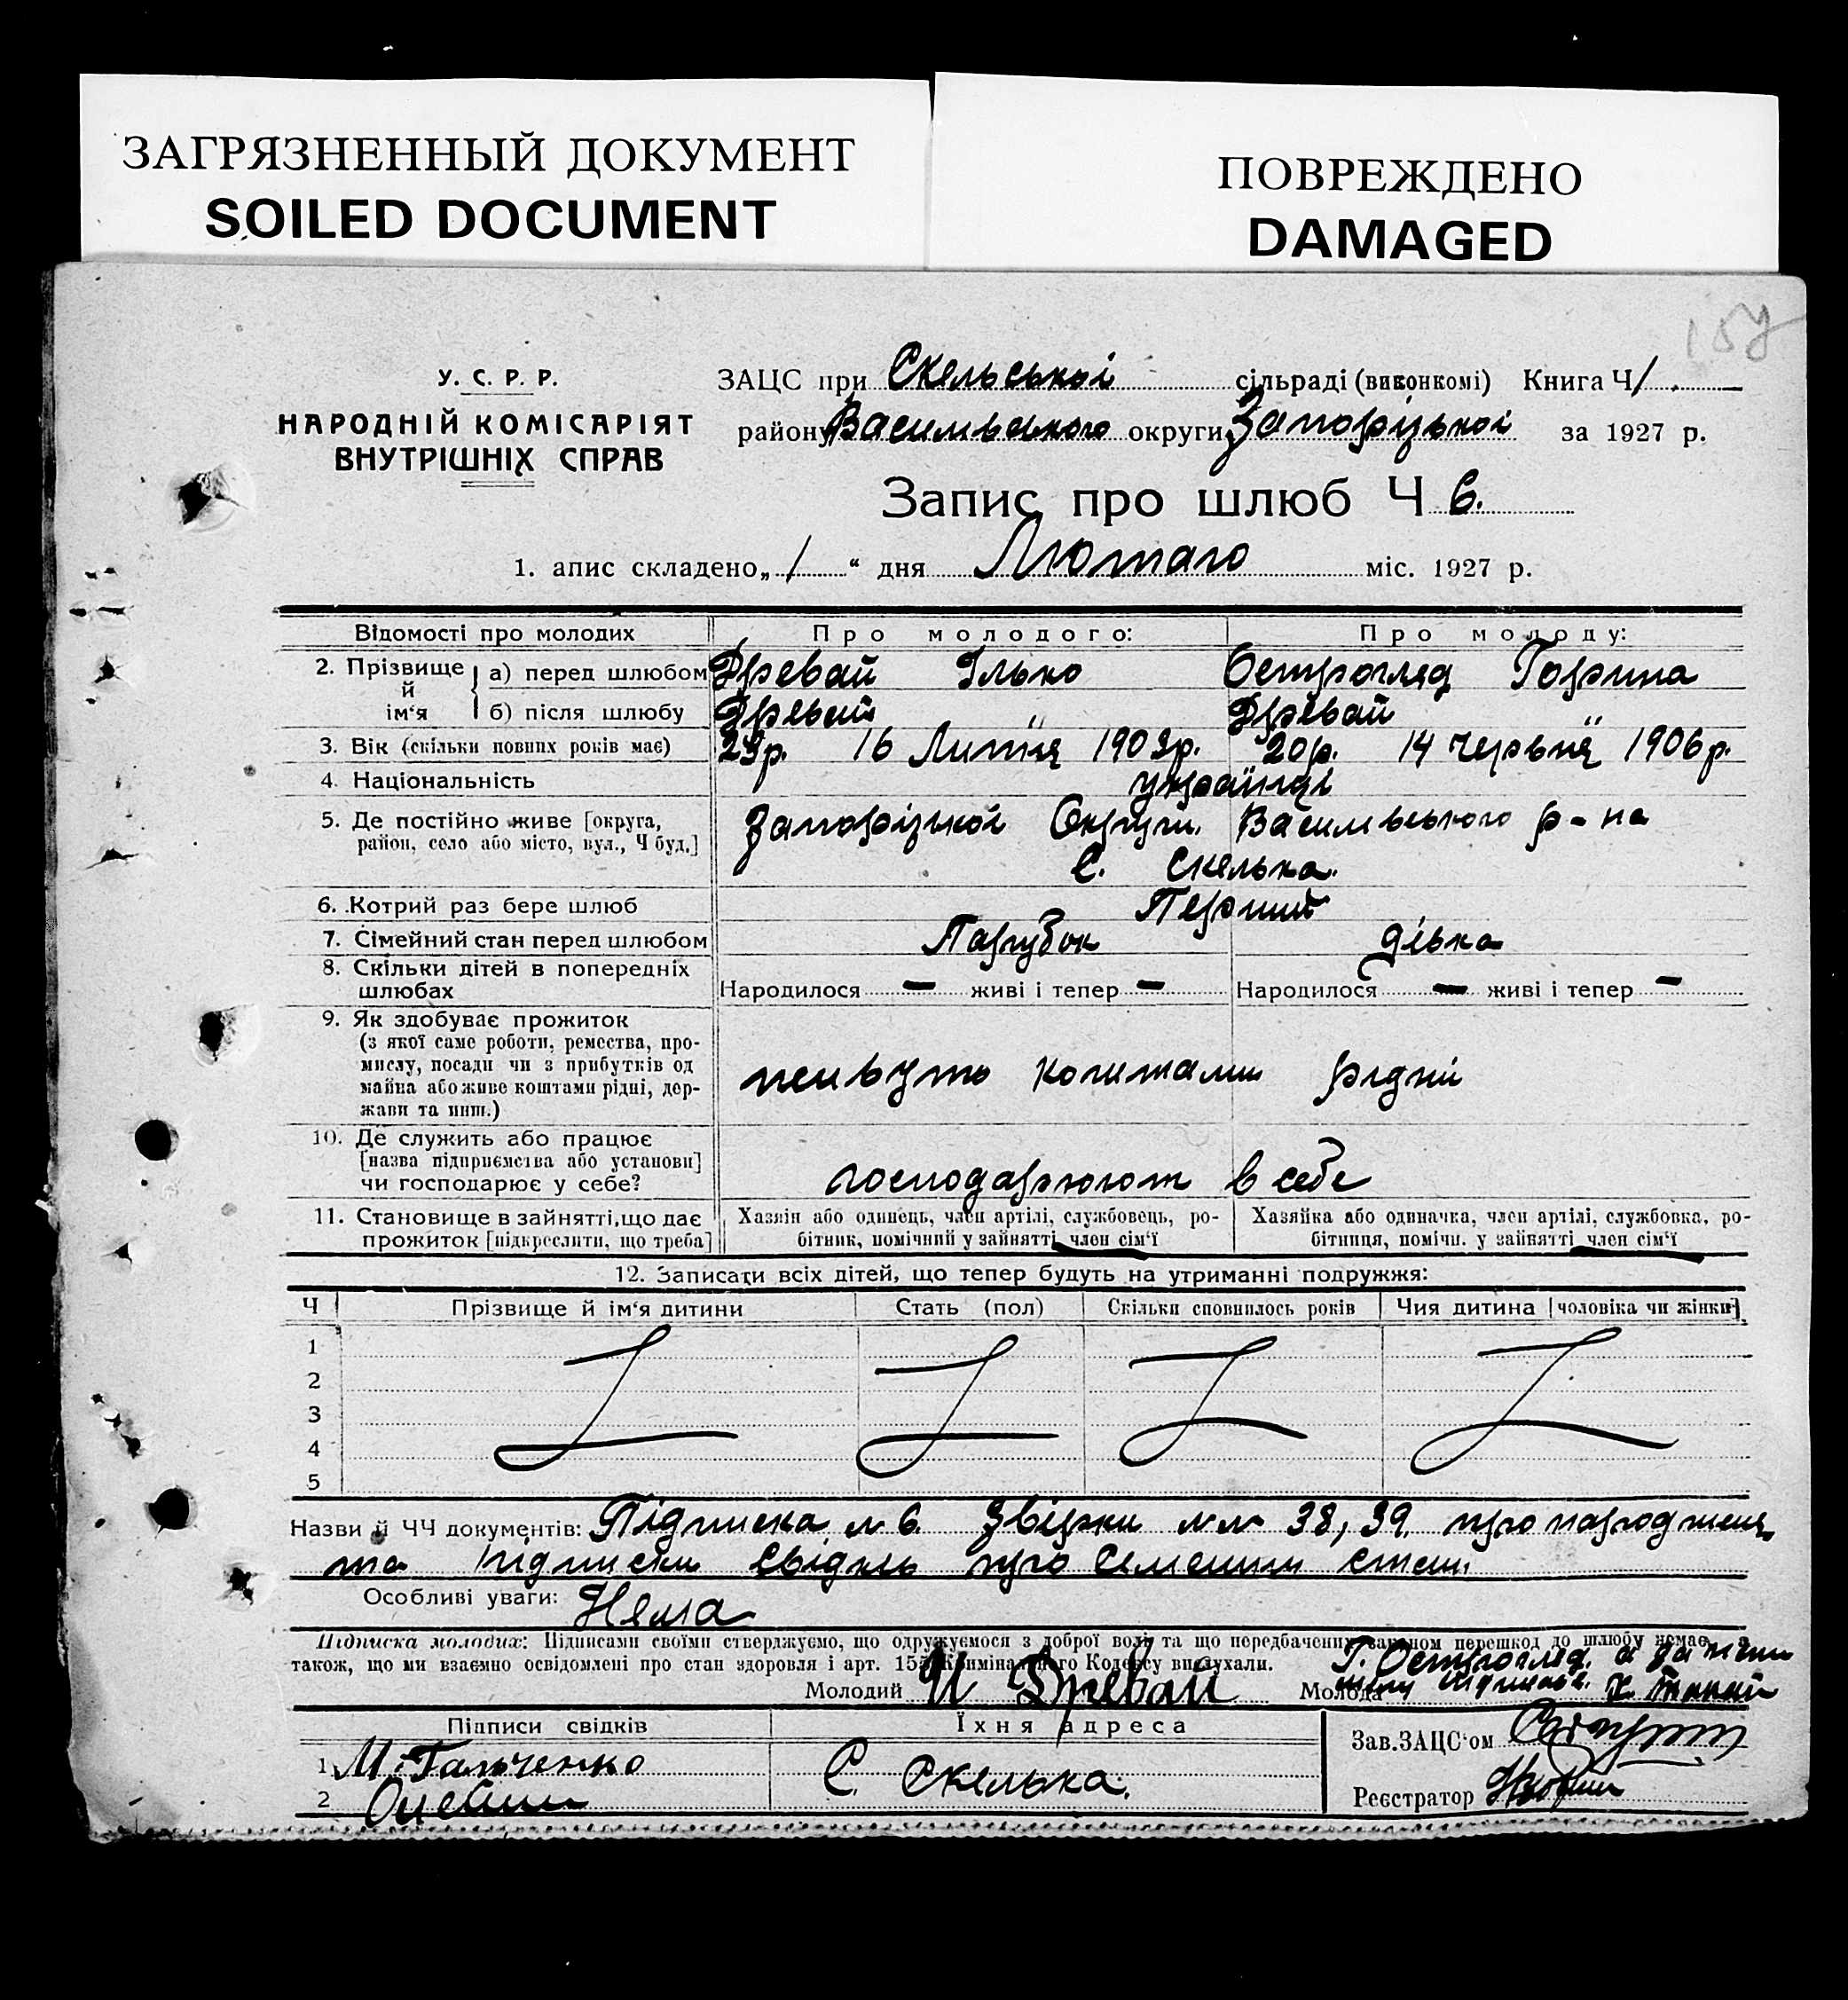 ЗАГРЯЗНЕННЫЙ ДОКУМЕНТ
SOILED DOCUMENT
ПОВРЕЖДЕНО
DAMAGED
У. С. Р. Р.
НАРОДНІЙ КОМІСАРІЯТ
ВНУТРІШНІХ СПРАВ
ЗАЦС при Скельській сільраді (виконкомі) Книга Ч 1
району Васильвського округи Запорізької за 1927 р.
Запис про шлюб Ч 6.
1. апис складено „1“ дня Лютаго міс. 1927 р.
Відомості про молодих Про молодого: Про молоду:
2. Прізвище й ім‘я а) перед шлюбом Древай Ілько Острогляд Горпина
б) після шлюбу Древай Древай
3. Вік (скільки повних років має) 23р. 16 Липня 1903р. 20р. 14 червня 1906р.
4. Національність українці
5. Де постійно живе [округа, район, село або місто, вул., Ч буд.] Запорізької Округи. Васильвського р-на
С. Скелька.
6. Котрий раз бере шлюб Перший
7. Сімейний стан перед шлюбом Парубок дівка
8. Скільки дітей в попередніх шлюбах Народилося — живі і тепер — Народилося — живі і тепер —
9. Як здобуває прожиток
(з якої саме роботи, ремества, про-
мислу, посади чи з прибутків од
майна або живе коштами рідні, дер-
жави та инш.)
живуть коштами рідні
10. Де служить або працює
[назва підприємства або установи]
чи господарює у себе?
господарюють в себе
11. Становище в зайнятті, що дає
прожиток [підкреслити, що треба]
Хазяін або одинець, член артілі, службовець, ро-
бітник, помічний у зайнятті член сім‘ї
Хазяйка або одиначка, член артілі, службовка, ро-
бітниця, помічн. у зайнятті член сім‘ї
12. Записати всіх дітей, що тепер будуть на утриманні подружжя:
Ч Прізвище й ім‘я дитини Стать (пол) Скільки сповнилось років Чия дитина [чоловіка чи жінки]
1
2
3
4
5
Назви й ЧЧ документів: Підписка № 6. Звірки №№ 38, 39. про народжен
та підписки свідків про семейний стан
Особливі уваги: Нема
Підписка молодих: Підписами своїми стверджуємо, що одружуємося з доброї волі, та що передбачених законом перешкод до шлюбу немає, а
також, що ми взаємно освідомлені про стан здоровля і арт. 155 Кримінального Кодексу вислухали.
Г. Острогляд. а за
Молодий И Древай Молода
Підписи свідків Їхня адреса
1. М. Гальченко С. Скелька.
2
Зав. ЗАЦС‘ом
Реєстратор